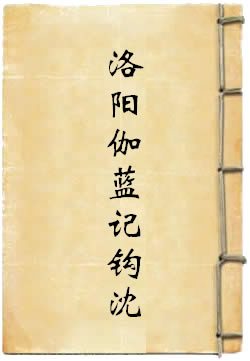 洛阳伽蓝记钩沈